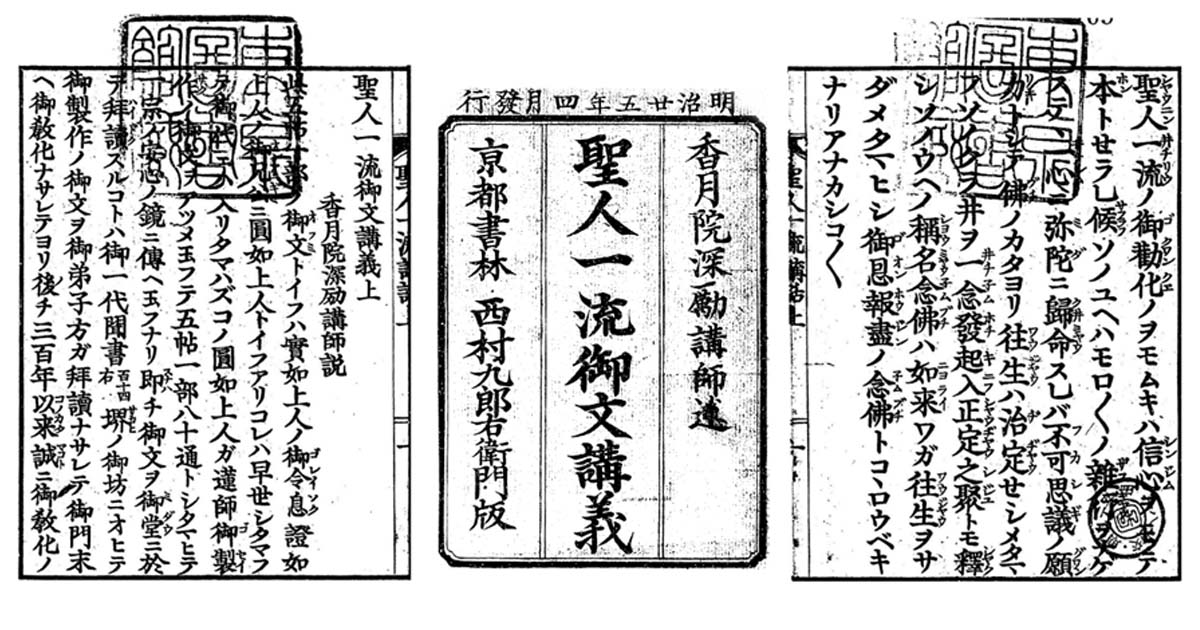 聖人一流ノ御勸化ノヲモムキハ信心ヲモツテ
本トせラレ候ソノユヘハモロ〳〵ノ雜行ヲナゲ
ステヽ一心ニ弥陀ニ歸命スレバ不可思議ノ願
力トシテ佛ノカタヨリ往生ハ治定せシメタマ
フソノクラ井ヲ一念發起入正定之聚トモ釋
シソノウヘノ稱名念佛ハ如来ワガ往生ヲサ
ダメタマヒシ御恩報盡ノ念佛トコヽロウベキ
ナリアナカシコ〳〵
明治廿五年四月發行
香月院深励講師述
聖人一流御文講義
京都書林 西村九郎右衛門版
聖人一流御文講義上
香月院深励講師説
此五帖一部ノ御文トイフハ實如上人ノ御令息證如
上人ノ御 ニ圓如上人トイフアリコレハ早世シタマフ
テ御代ニハ入リタマハズコノ圓如上人ガ蓮師御製
作ノ御文ヲアツメ玉フテ五帖一部八十通トシタマヒテ
一宗ノ安心ノ鏡ニ傳ヘ玉フナリ即チ御文ヲ御堂ニ於
テ拜讀スルコトハ御一代聞書右百十四堺ノ御坊ニオヒテ
御製作ノ御文ヲ御弟子方ガ拜讀ナサレテ御門末
ヘ御教化ナサレテヨリ後チ三百年以来誠ニ御教化ノ